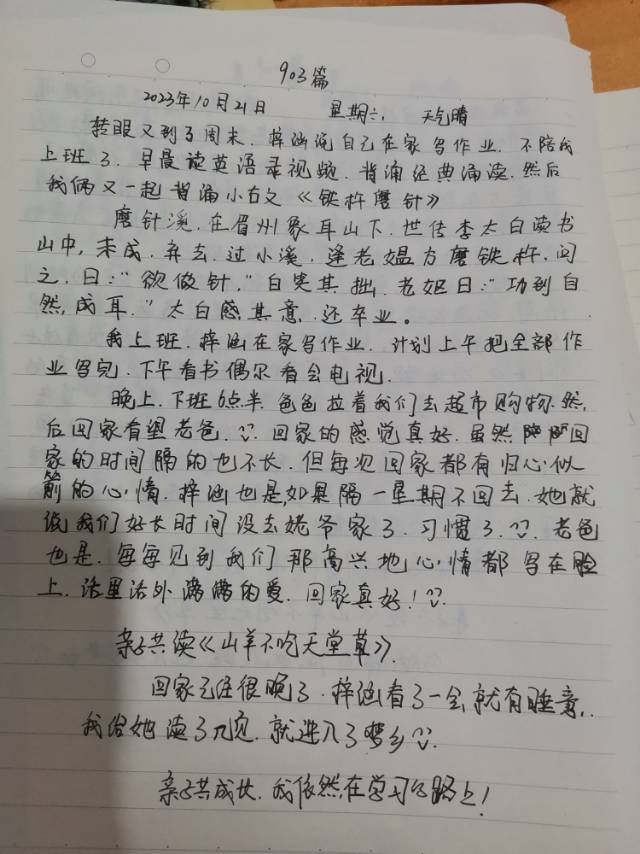 903篇
2023年10月21日 星期六 天气晴
转眼又到了周末,梓涵说自己在家写作业,不陪我
上班了,早晨读英语录视频,背诵经典诵读,然后
我俩又一起背诵小古文《铁杵磨针》
磨针溪,在眉州象耳山下,世传李太白读书
山中,未成,弃去,过小溪,逢老媪方磨铁杵,问
之,曰:“欲做针,”白笑其拙,老妪曰:“功到自
然,成耳.”太白感其意,还卒业。
我上班,梓涵在家写作业,计划上午把全部作
业写完,下午看书偶尔看会电视.
晚上,下班6点半,爸爸拉着我们去超市购物,然,
后回家看望老爸.回家的感觉真好,虽然回
家的时间隔的也不长,但每次回家都有归心似
箭的心情,梓涵也是,如果隔一星期不回去,她就
说我们好长时间没去姥爷家了,习惯了.老爸
也是,每每见到我们那高兴地心情都写在脸
上,话里话外满满的爱,回家真好!
亲子共读《山羊不吃天堂草》.
回家已经很晚了,梓涵看了一会就有睡意,
我给她读了几句,就进入了梦乡.
亲子共成长,我依然在学习的路上!